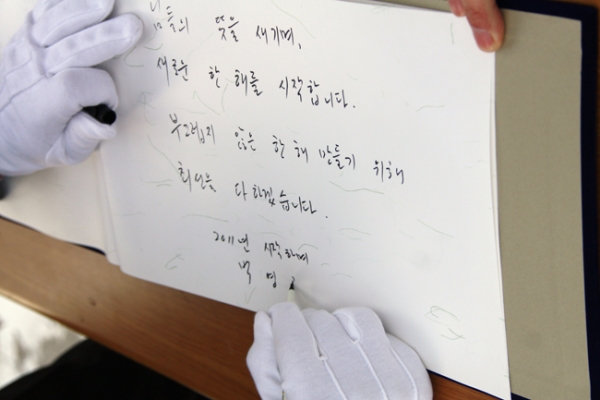 님들의 뜻을 새기며,
새로운 한 해를 시작합니다.
부끄럽지 않은 한 해 만들기 위해
최선을 다하겠습니다.
2011년 시작하며